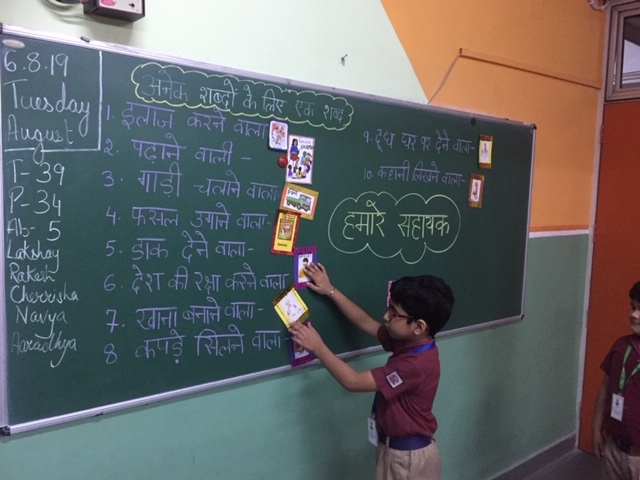 6.8.19
Tuesday
August
T-39
P-34
Ab- 5
Lakshay
Rakesh
Cherrisha
Navya
Aaradhya
अनेक शब्दों के लिए एक शब्द
1. इलाज करने वाला
2. पढ़ाने वाली -
3. गाड़ी चलाने वाला
4. फसल उगाने वाला-
5. डाक देने वाला-
6. देश की रक्षा करने वाला
7. खाना बनाने वाला-
8 कपड़े सिलने वाला
९. दूध घर पर देने वाला-
10. कहानी लिखने वाला-
हमारे सहायक